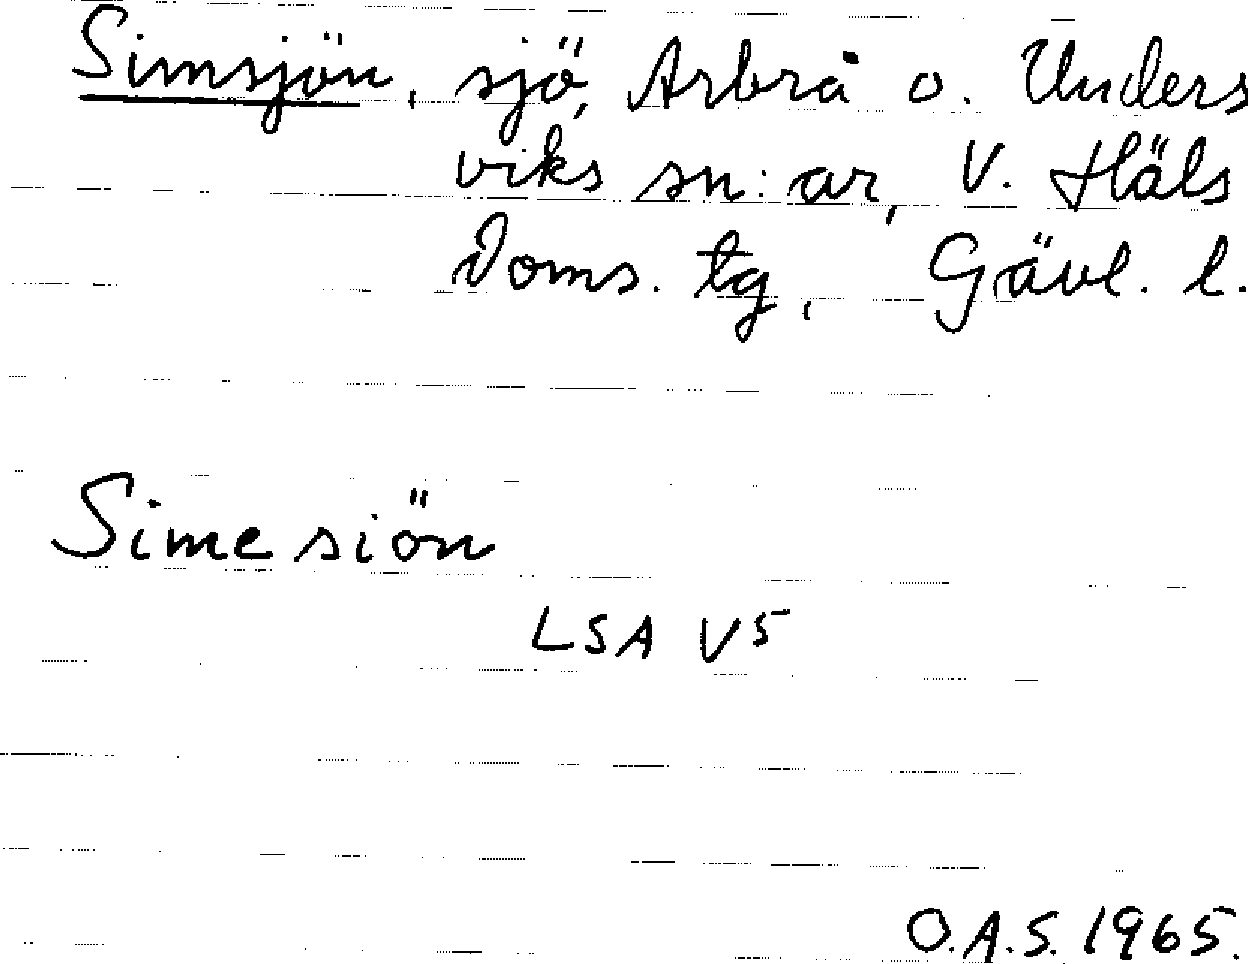 Simsjön, sjö, Arbrå o. Unders
viks sn:ar, V. Häls
Doms. tg, Gävl. l.
Simesiön
LSA V5
O.A.S. 1965.